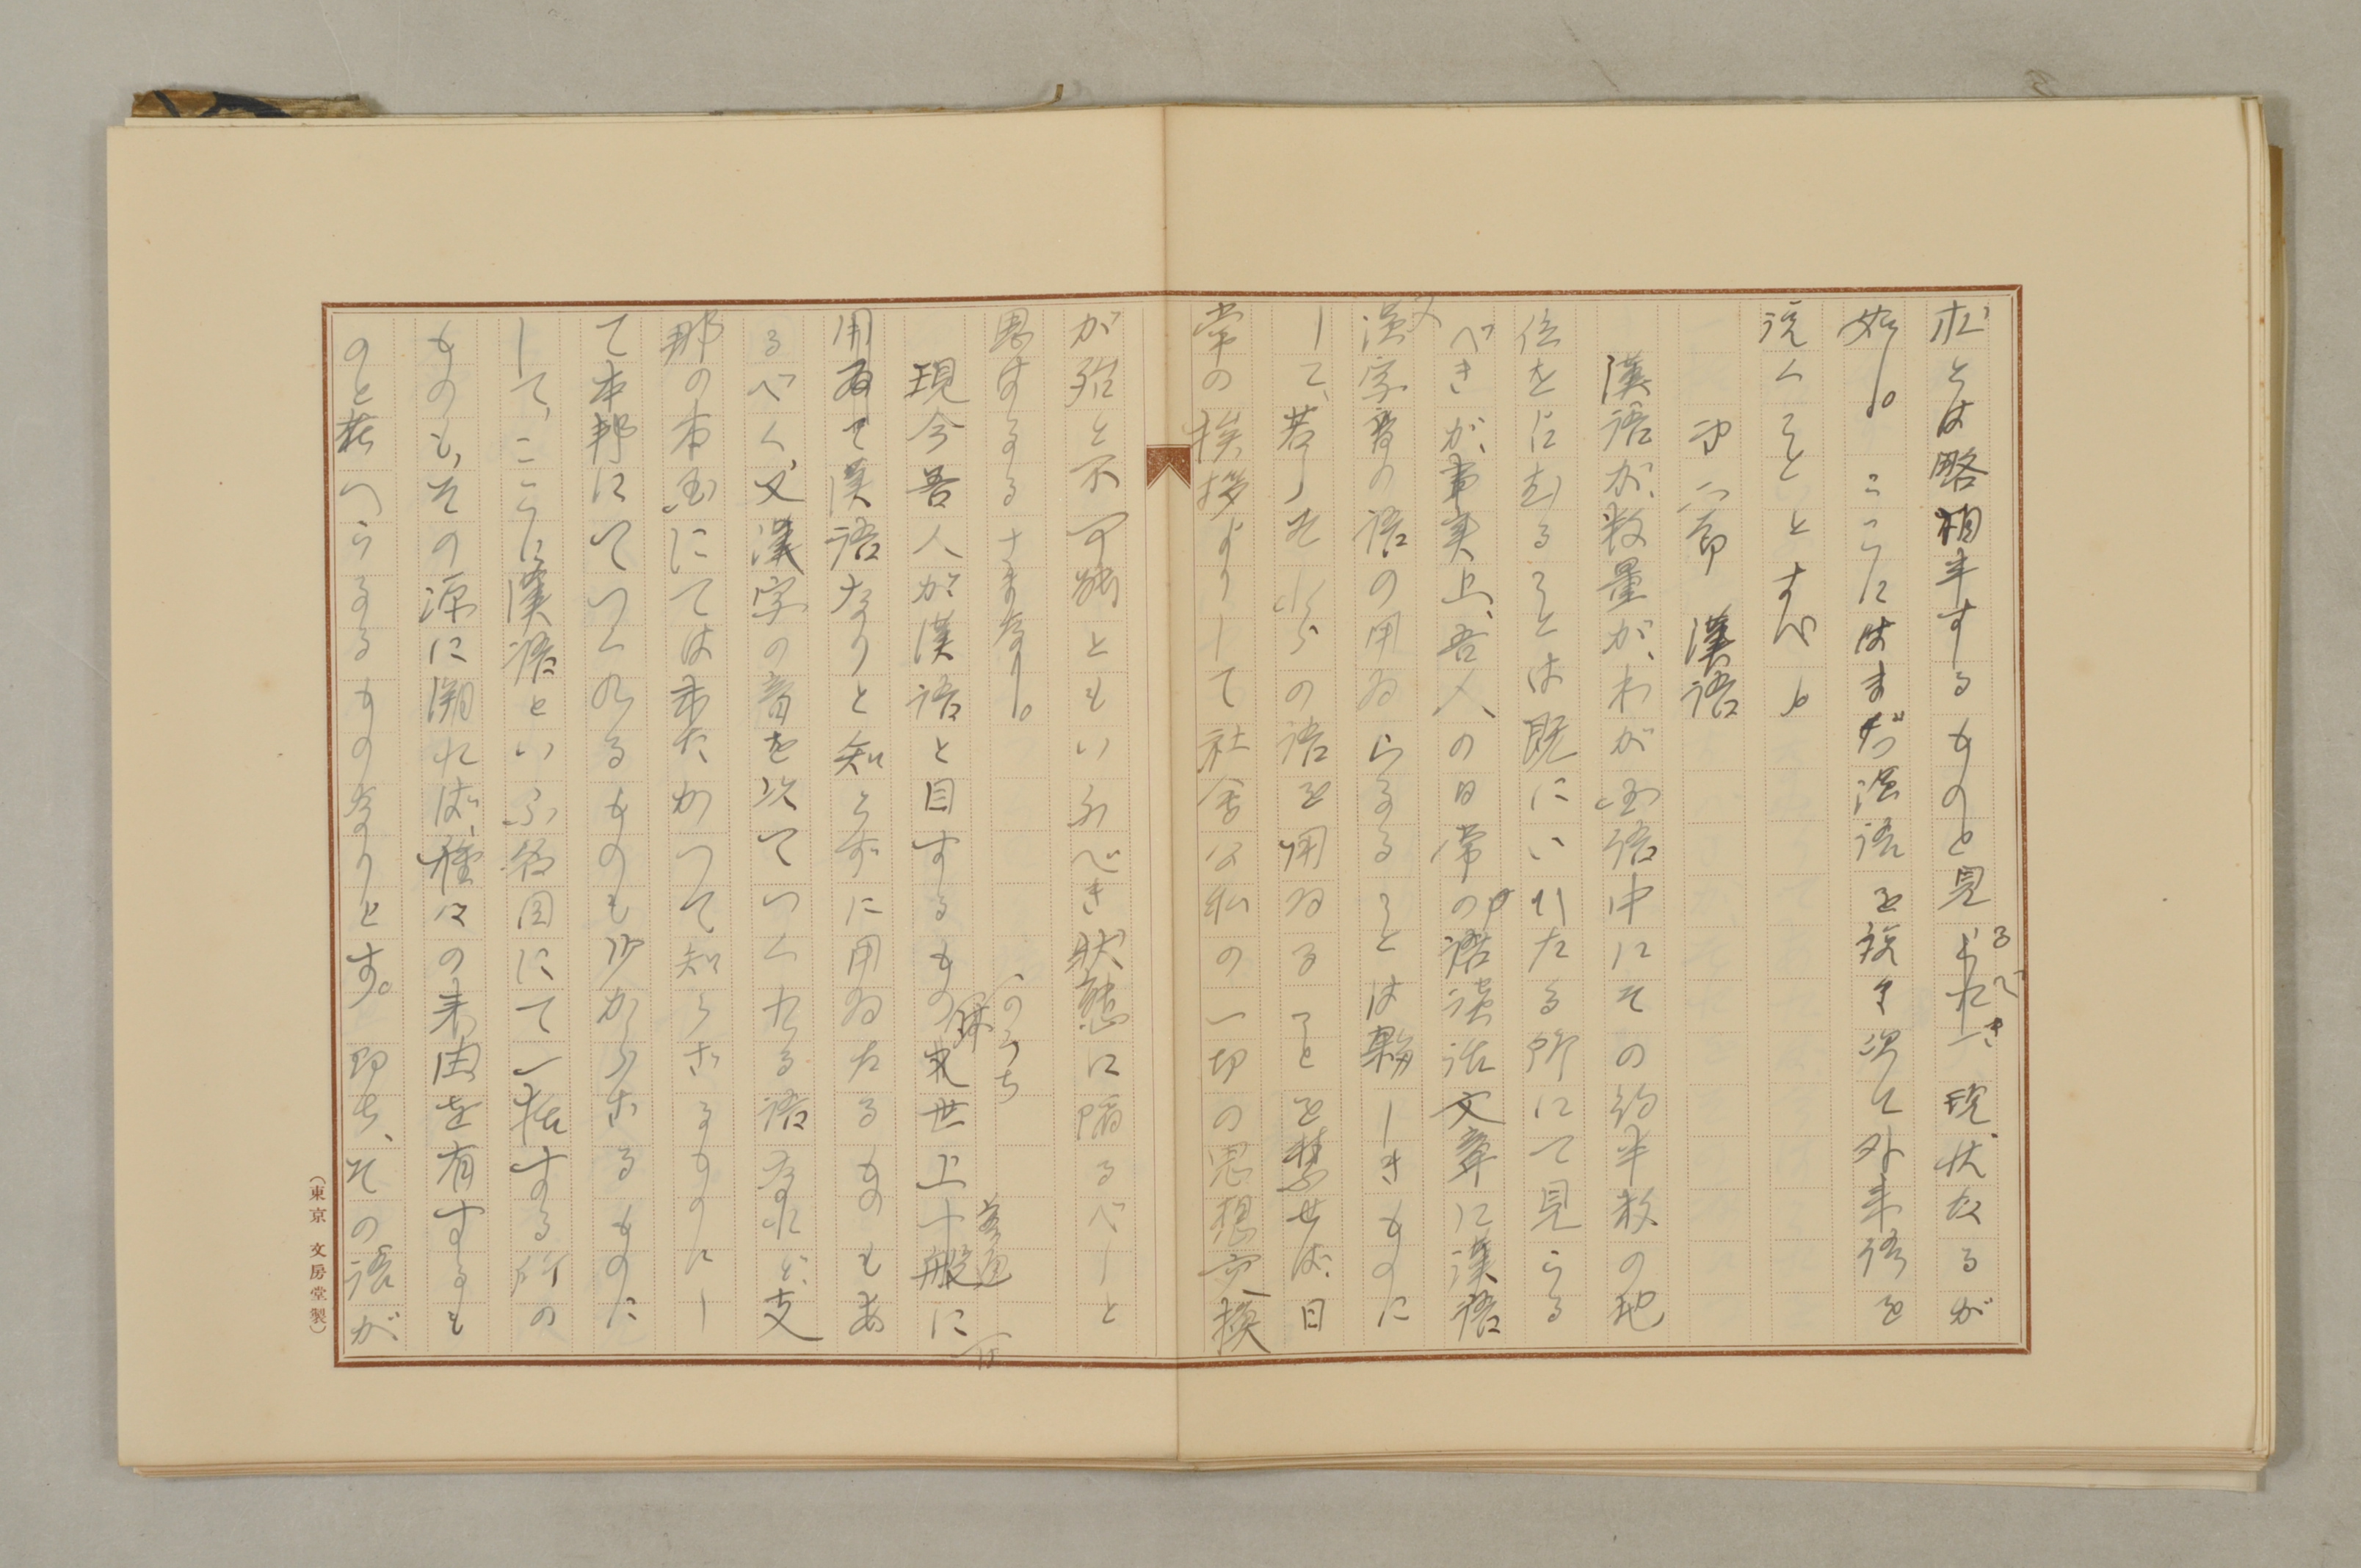 ホとは略相半するものと見るべき現状なるが
如し。ここにはまづ漢語を説き次に外来語を
説くこととすべし
第二節 漢語
漢語が、数量が、わが国語中にその約半数の地
位を占むることは既にいひたる所にて見らる
べきが、事実上、吾人の日常の談話文章に漢語
又漢字音の語の用ゐらるることは夥しきものに
して、若しそれらの語を用ゐることを禁ぜば、日
常の挨拶よりして社会公私の一切の思想交換
が殆と不可能ともいふべき状態に陥るべしと
思はるるなり。
現今吾人が漢語と目するもののうち世上普通に
用ゐて漢語なりと知らずに用ゐたるものもあ
るべく、又漢字の音を以ていくれる語なれど、支
那の本国にては未だかつて知らざるものにし
て本邦にていくれるものも少からざるものに
して、ここに漢語といふ名目にて一括する所の
ものも、その源に溯れば、種々の来由を有するも
のと考へらるるものなりとす。即ち、その語が
（東京 文房堂製）